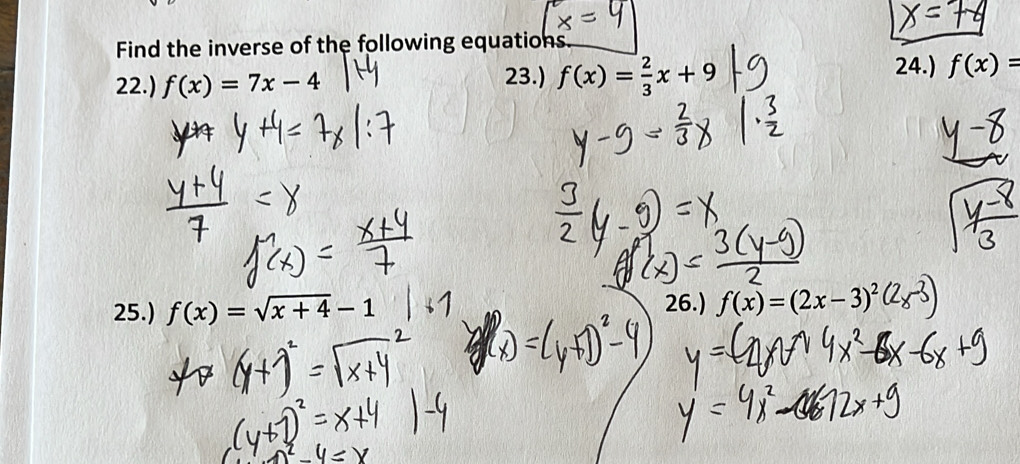 x = 4
x = +4
Find the inverse of the following equations.
22.) f(x) = 7x − 4 |+4
y+4 = 7x |:7
(y+4)/7 = x
f⁻¹(x) = (x+4)/7
23.) f(x) = 2/3 x + 9 |-9
y-9 = 2/3 x |· 3/2
3/2 (y-9) = x
f⁻¹(x) = 3(y-9)/2
24.) f(x) =
y-8
√((y-8)/3)
25.) f(x) = √(x + 4) − 1 | +1
(y+1)² = √(x+4)²
(y+1)² = x+4 |-4
-4 = x
(x) = (y+1)² - 4
26.) f(x) = (2x − 3)² (2x-3)
y = 4x² - 6x - 6x + 9
y = 4x² - 12x + 9